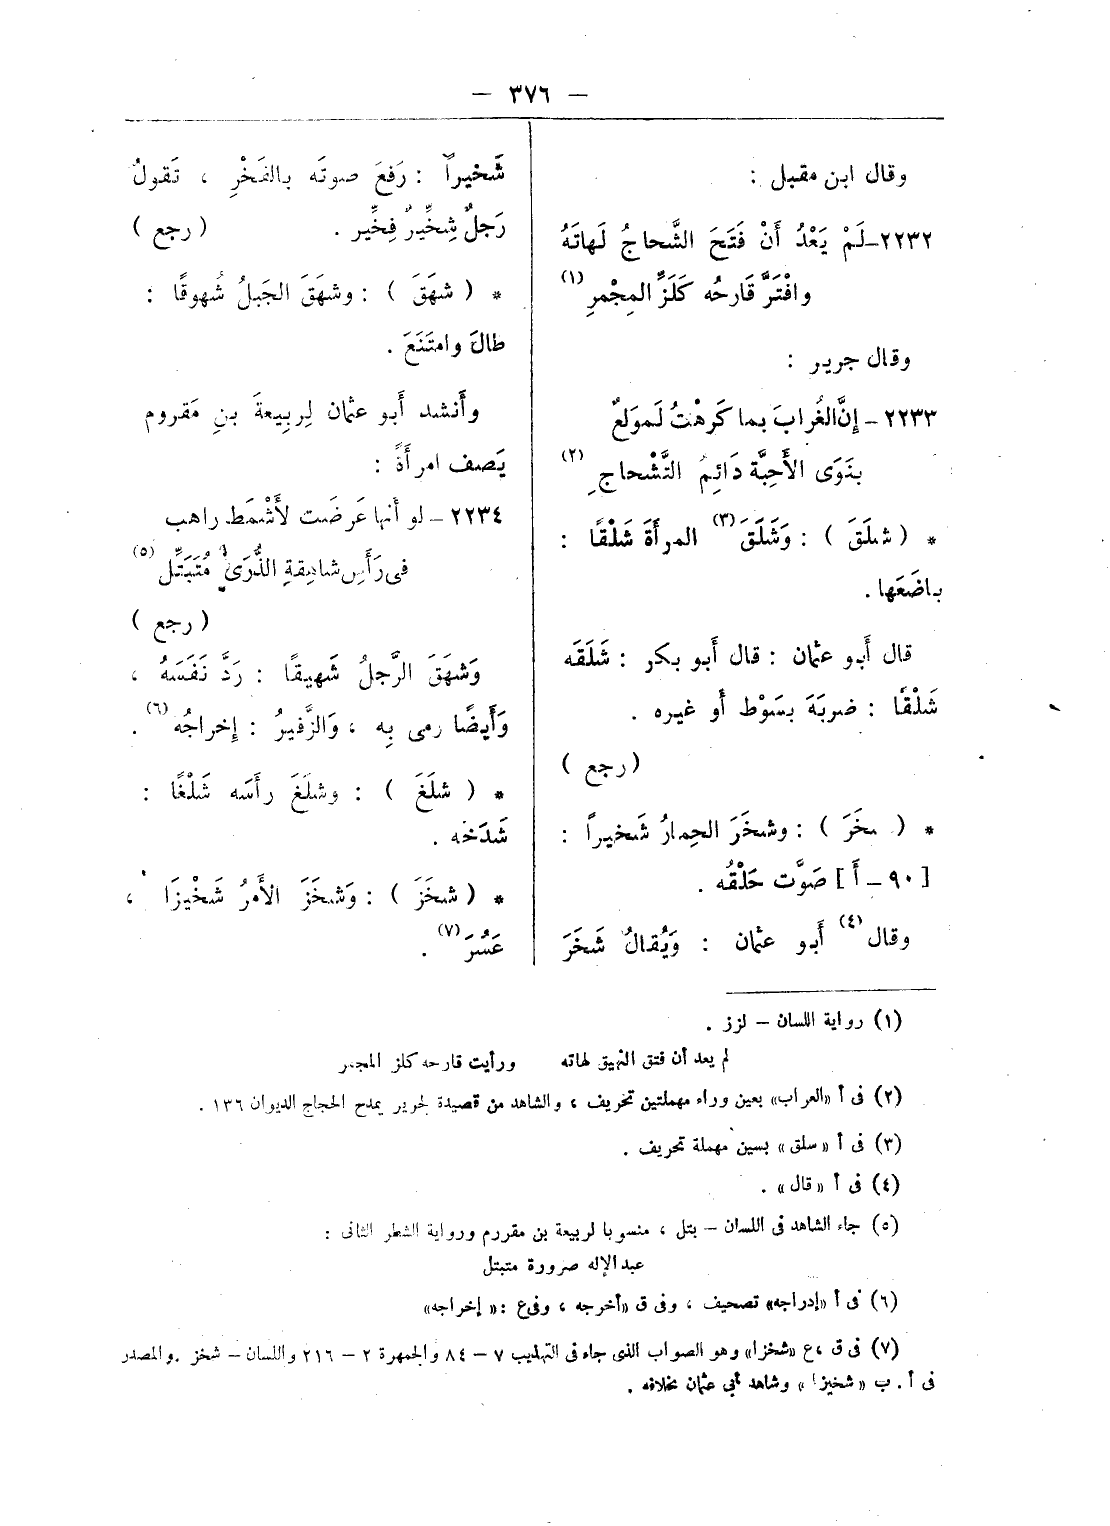 — ٣٧٦ —
وقال ابن مقبل :
٢٢٣٢–لَمْ يَعْدُ أَنْ فَتَحَ الشَّحاجُ لَهاتَهُ
وافْتَرَّ قَارحُه كَلَزِّ المِجْمرِ (١)
وقال جرير :
٢٢٣٣ – إنَّ الغُرابَ بما كَرِهْتُ لَمولَعٌ
بنَوَى الأَحِبَّة دَائِمُ التَّشْحاجِ (٢)
* ( شلَقَ ) : وَشَلَقَ (٣) المرأَةَ شَلْقًا :
باضَعَها .
قال أَبو عثمان : قال أَبو بكر : شَلَقَه
شَلْقًا : ضربَهَ بسَوْط أَو غيره .
( رجع )
* ( شخَرَ ) : وشخَرَ الحِمارُ شَخيراً :
[ ٩٠ – أَ ] صَوَّت حَلْقُه .
وقال (٤) أَبو عثمان : وَيُقالُ شَخَرَ
شَخيراً : رَفعَ صوتَه بالفَخْرِ ، تَقولُ
رَجلٌ شِخِّيرٌ فِخِّير . ( رجع )
* ( شهَقَ ) : وشهَقَ الجَبلُ شُهوقًا :
طالَ وامتَنَعَ .
وأَنشد أَبو عثمان لِربِيعةَ بنِ مَقروم
يَصف امرأَةً :
٢٢٣٤ – لو أَنها عَرضَت لأَشْمَط راهب
فى رَأَسِ شاهِقةِ الذُّرَى مُتَبَتِّل (٥)
( رجع )
وَشهَقَ الرَّجلُ شَهيقًا : رَدَّ نَفَسَهُ ،
وَأَيضًا رمى بِه ، وَالزَّفيرُ : إخراجُه (٦) .
* ( شلَغَ ) : وشلَغَ رأَسَه شَلْغًا :
شَدَخَه .
* ( شخَزَ ) : وَشخَزَ الأَمرُ شَخْيزًا ،
عَسُرَ (٧) .
(١) رواية اللسان – لزز .
لم يعد أن فتق النهيق لهاته ورأيت قارحه كلز المجمر
(٢) فى أ «العراب» بعين وراء مهملتين تحريف ، والشاهد من قصيدة لجرير يمدح الحجاج الديوان ١٣٦ .
(٣) فى أ « سلق » بسين مهملة تحريف .
(٤) فى أ « قال » .
(٥) جاء الشاهد فى اللسان – بتل ، منسوبا لربيعة بن مقروم ورواية الشطر الثانى :
عبد الإله صرورة متبتل
(٦) فى أ «إدراجه» تصحيف ، وفى ق «أخرجه ، وفى ع : « إخراجه»
(٧) فى ق ، ع «شخزا» وهو الصواب الذى جاء فى التهذيب ٧ – ٨٤ والجمهرة ٢ – ٢١٦ واللسان – شخز . والمصدر
فى أ . ب « شخيزا » وشاهد أبي عثمان بخلافه .